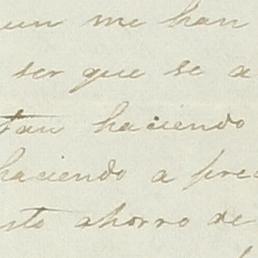 un me han
ser que se a
tan haciendo
haciendo a pre
sto ahorro de